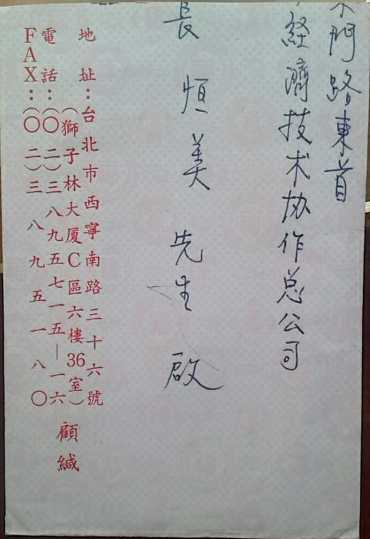 門路東首
經濟技术协作总公司
長恒美先生 啟
地址：台北市西寧南路三十六號
（獅子林大厦C區六樓36室）
電話：（〇二）三八九五七一五—一六
FAX：（〇二）三八九五一八〇
顧緘